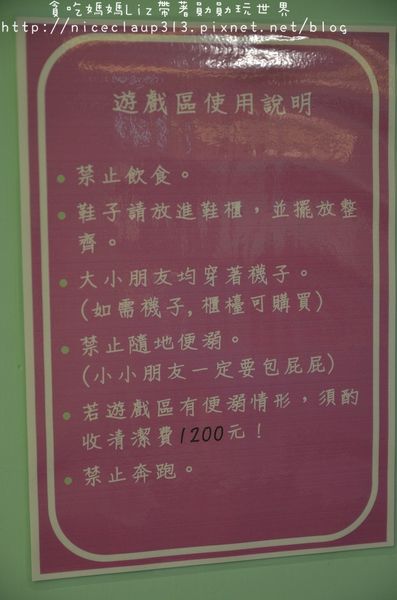 貪吃媽媽Liz帶著勛勛玩世界
http://niceclaup313.pixnet.net/blog
遊戲區使用說明
• 禁止飲食。
• 鞋子請放進鞋櫃，並擺放整
齊。
• 大小朋友均穿著襪子。
(如需襪子, 櫃檯可購買)
• 禁止隨地便溺。
(小小朋友一定要包屁屁)
• 若遊戲區有便溺情形，須酌
收清潔費1200元！
• 禁止奔跑。